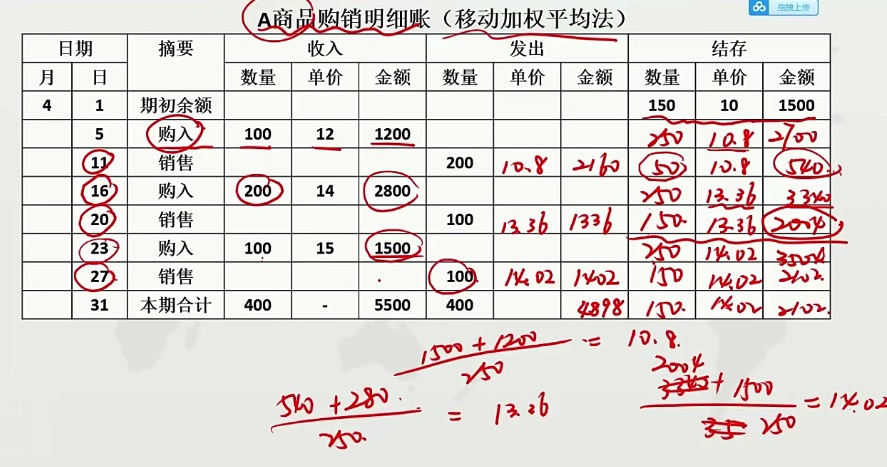 拖拽上传
A商品购销明细账（移动加权平均法）
日期 摘要 收入 发出 结存
月 日 数量 单价 金额 数量 单价 金额 数量 单价 金额
4 1 期初余额 150 10 1500
5 购入 100 12 1200 250 10.8 2700
11 销售 200 10.8 2160 50 10.8 540
16 购入 200 14 2800 250 13.36 3340
20 销售 100 13.36 1336 150 13.36 2004
23 购入 100 15 1500 250 14.02 3504
27 销售 100 14.02 1402 150 14.02 2102
31 本期合计 400 - 5500 400 4898 150 14.02 2102
1500 + 1200
250
= 10.8
540 + 280
250
= 13.36
2004
+ 1500
250
= 14.02